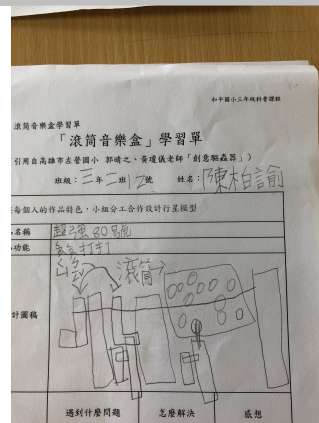 和平國小三年級科普課程
滾筒音樂盒學習單
「滾筒音樂盒」學習單
引用自高雄市左營國小 郭晴之、黃瓊儀老師「創意驅蟲器」)
班級:三年二班12號 姓名:陳柏諭
每個人的作品特色,小組分工合作設計行星模型
名稱 超強80號
功能 敲敲打打
滾筒
計圖稿
遇到什麼問題 怎麼解決 感想